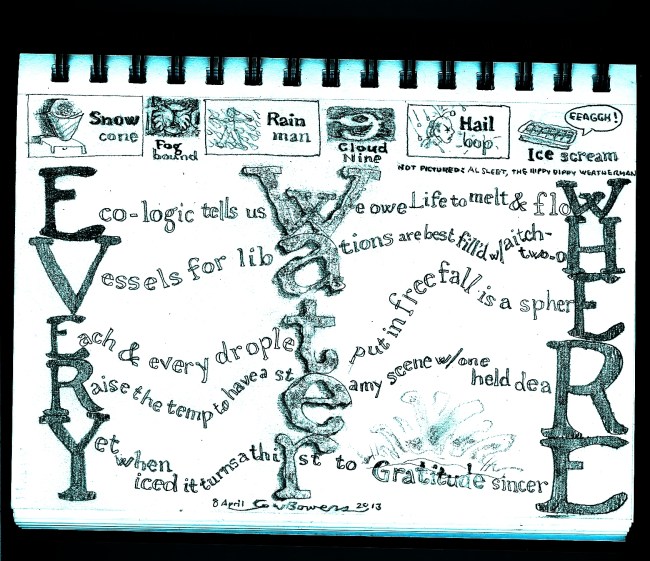 Snow cone
Fog bound
Rain man
Cloud Nine
Hail bop
EEAGGH!
Ice scream
NOT PICTURED: AL SLEET, THE HIPPY DIPPY WEATHERMAN
Eco-logic tells us We owe Life to melt & floW
Vessels for libations are best fill'd w/aitch-two-oH
Each & every droplet put in free fall is a spherE
Raise the temp to have a steamy scene w/one held deaR
Yet when iced it turns a thirst to Gratitude sincerE
8 April Bowers 2013